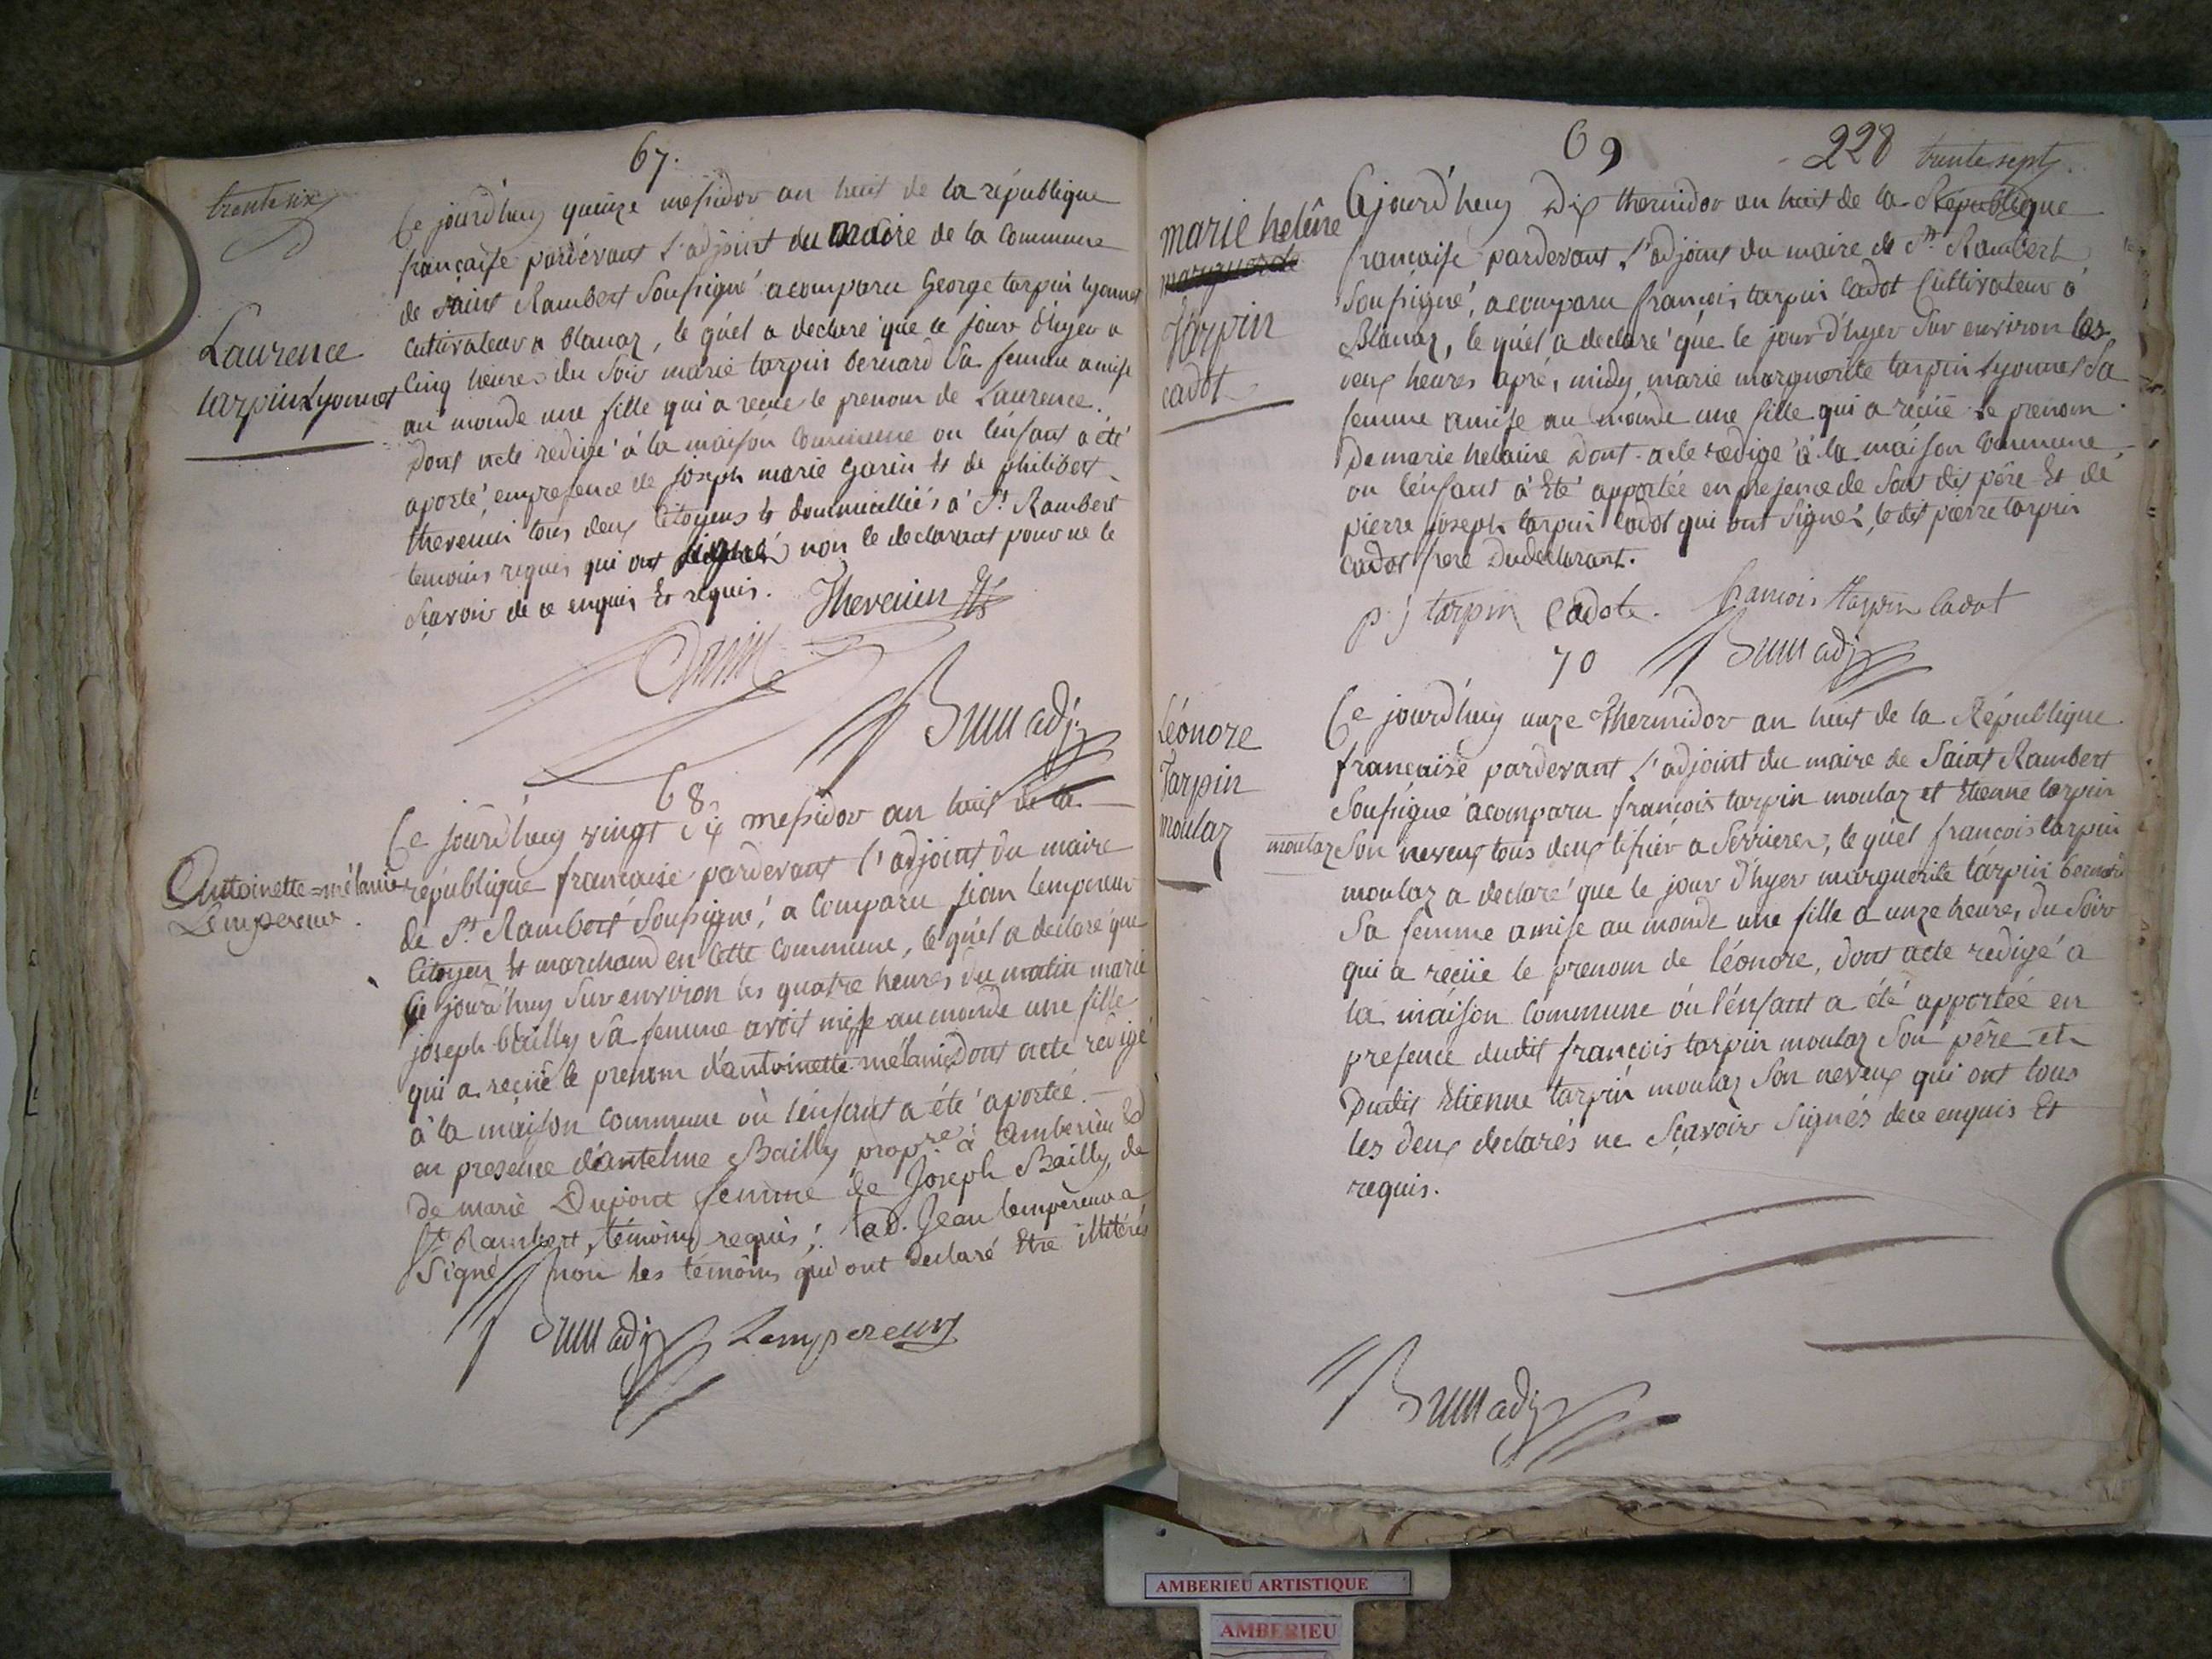 trente six
67.
Laurence
tarpin Lyonnet
Ce jourd'huy quinze messidor an huit de la république
française pardevant l'adjoint du maire de la commune
de saint Rambert soussigné a comparu George tarpin lyonnet
cultivateur a blanaz, le quel a declaré que le jour d'hyer a
cinq heures du soir marie tarpin bernard sa femme a mise
au monde une fille qui a reçue le prenom de Laurence.
Dont acte redigé à la maison commune ou l'enfant a été
aporté, en presence de joseph marie garin et de philibert
thevenin tous deux citoyens et dommicilliés à St Rambert
temoins requis qui ont signé non le declarant pour ne le
sçavoir de ce enquis et requis.
Thevenin
Garin
Brun adj.
68
Antoinette=mélanie
Lempereur.
Ce jourd'huy vingt six messidor an huit de la
république française pardevant l'adjoint du maire
de St Rambert soussigné, a comparu jean lempereur
citoyen et marchand en cette commune, le quel a declaré que
ce jourd'huy sur environ les quatre heures du matin marie
joseph bailly sa femme avoit mise au monde une fille
qui a reçüe le prenom d'antoinette mélanie, Dont acte redigé
à la maison commune où l'enfant a été aportée.
en presence d'antelme Bailly propre. à Amberieu et
de marie Dupont femme de Joseph Bailly, de
St Rambert, témoins requis; led. Jean lempereur a
signé non les témoins qui ont declaré être illitérés
Brun adj Lempereur
69
228
trente sept
marie helêne
marguerite
Tarpin
cadot
Cejourd'huy dix thermidor an huit de la République
française pardevant l'adjoint du maire de St Rambert
soussigné, a comparu françois tarpin cadot cultivateur à
Blanaz, le quel a declaré que le jour d'hyer sur environ les
deux heures aprés midy marie marguerite tarpin lyonnet sa
femme a mise au monde une fille qui a reçüe le prenom
De marie helaine dont acte redigé à la maison commune
ou l'enfant à été apportée en presence de son dit pére et de
pierre joseph tarpin cadot qui ont signés, le dit pierre tarpin
cadot frere du declarant.
p j tarpin cadot. francois tarpin cadot
Brun adj
70
Léonore
Tarpin
moulaz
Ce jourd'huy unze thermidor an huit de la République
française pardevant l'adjoint du maire de Saint Rambert
soussigné a comparu françois tarpin moulaz et Etienne tarpin
moulaz son neveux tous deux a Serrieres, le quel françois tarpin
moulaz a declaré que le jour d'hyer marguerite tarpin bernard
sa femme a mise au monde une fille a unze heures du soir
qui a reçüe le prenom de léonore, dont acte redigé a
la maison commune où l'enfant a été apportée en
presence dudit françois tarpin moulaz son pére et
Dudit Etienne tarpin moulaz son neveux qui ont tous
les deux declarés ne sçavoir signés de ce enquis et
requis.
Brun adj
AMBERIEU ARTISTIQUE
AMBERIEU